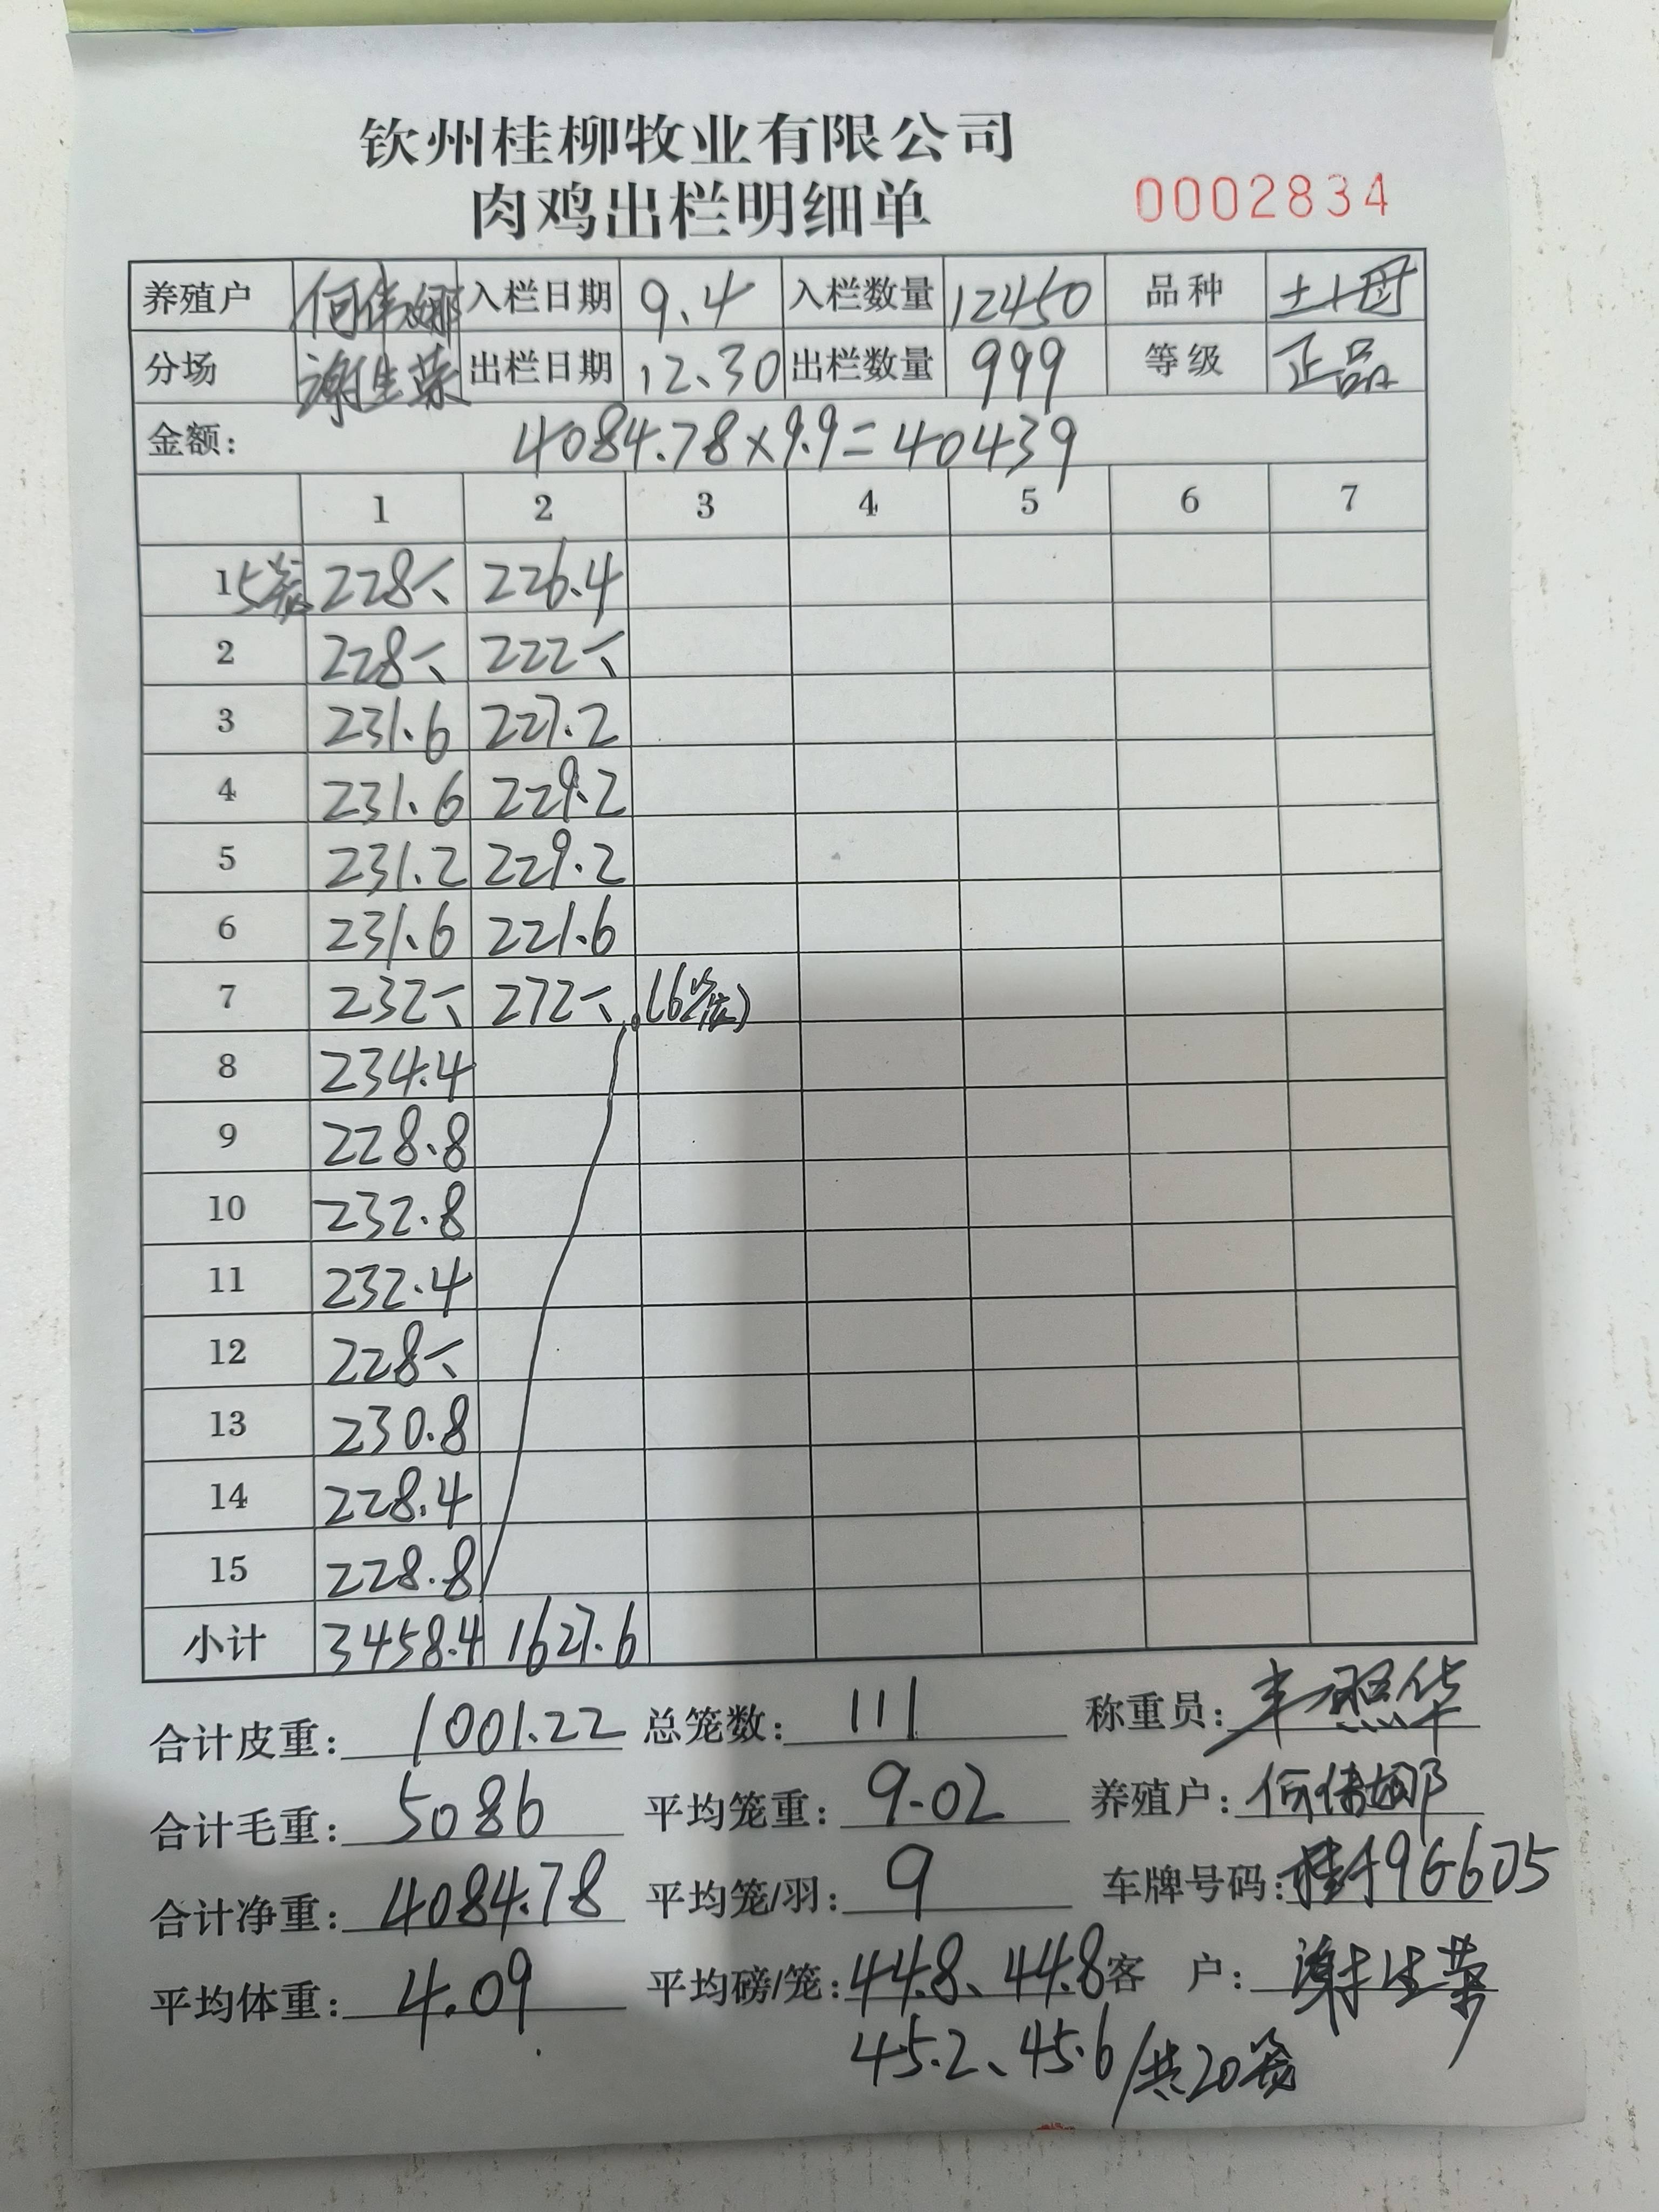 钦州桂柳牧业有限公司
肉鸡出栏明细单 0002834
养殖户 何伟娜 入栏日期 9.4 入栏数量 12450 品种 土1母
分场 谢生荣 出栏日期 12.30 出栏数量 999 等级 正品
金额: 4084.78×9.9=40439
1 2 3 4 5 6 7
1 5笼 228 226.4
2 228 222
3 231.6 227.2
4 231.6 229.2
5 231.2 229.2
6 231.6 221.6
7 232 272 (6笼)
8 234.4
9 228.8
10 232.8
11 232.4
12 228
13 230.8
14 228.4
15 228.8
小计 3458.4 1627.6
合计皮重: 1001.22 总笼数: 111 称重员: 照华
合计毛重: 5086 平均笼重: 9.02 养殖户: 何伟娜
合计净重: 4084.78 平均笼/羽: 9 车牌号码: 桂
平均体重: 4.09 平均磅/笼: 44.8、44.8 客 户: 谢生荣
45.2、45.6/共20笼